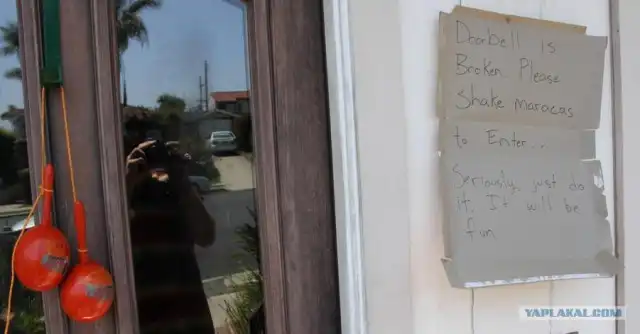 Doorbell is
Broken. Please
Shake maracas
to Enter...
Seriously, just do
it. It will be
fun
YAPLAKAL.COM